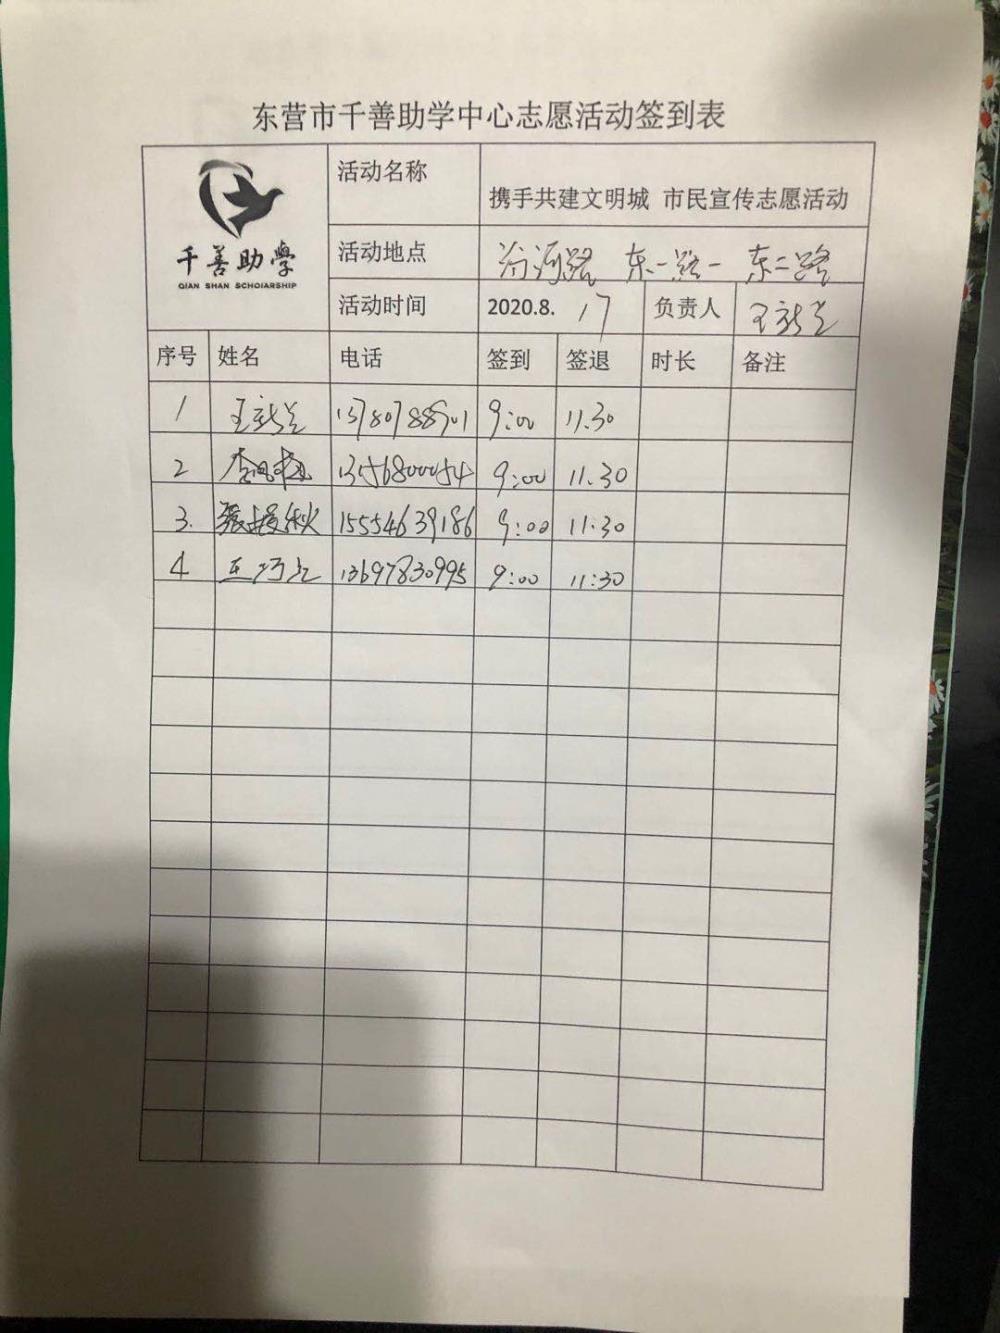 东营市千善助学中心志愿活动签到表
千善助學
QIAN SHAN SCHOIARSHIP
活动名称 携手共建文明城 市民宣传志愿活动
活动地点 路 东一路一 东二路
活动时间 2020.8.17 负责人 王
序号 姓名 电话 签到 签退 时长 备注
1 王 13780788901 9:00 11.30
2 李 13568000054 9:00 11.30
3. 张 秋 15554639186 9:00 11:30
4 王巧 13697830995 9:00 11:30